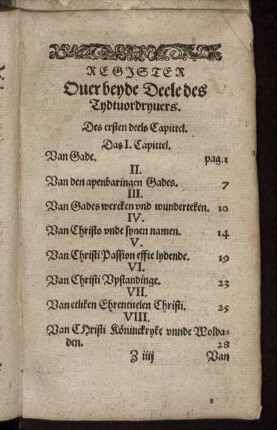 REGISTER
Ouer beyde Deele des
Tydtuordryuers.
Des ersten deels Capittel.
Das I. Capittel.
Van Gade. pag.1
II.
Van den apenbaringen Gades. 7
III.
Van Gades wercken vnd wunderteken. 10
IV.
Van Christo vnde synen namen. 14
V.
Van Christi Passion effte lydende. 19
VI.
Van Christi Vpstandinge. 23
VII.
Van etliken Ehrentitelen Christi. 25
VIII.
Van CHristi Köninckryke vnnde Wolda-
den. 28
Z iiij Van